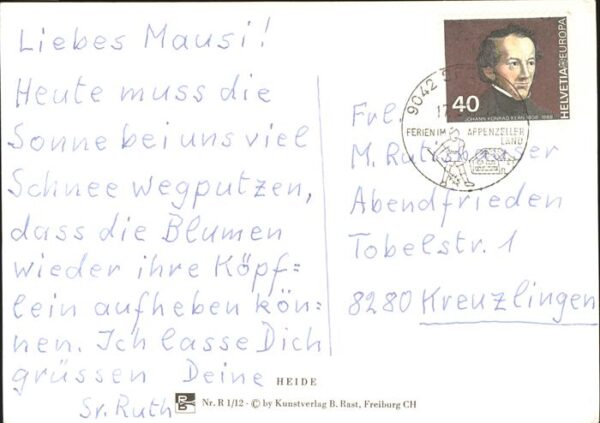 Liebes Mausi!
Heute muss die
Sonne bei uns viel
Schnee wegputzen,
dass die Blumen
wieder ihre Köpf=
lein aufheben kön=
nen. Ich lasse Dich
grüssen Deine
Sr. Ruth
HELVETIA EUROPA
40
JOHANN KONRAD KERN 1808-1888
9042
FERIEN IM APPENZELLER
LAND
Frl.
M. Rutishauser
Abendfrieden
Tobelstr. 1
8280 Kreuzlingen
HEIDE
Nr. R 1/12 - © by Kunstverlag B. Rast, Freiburg CH